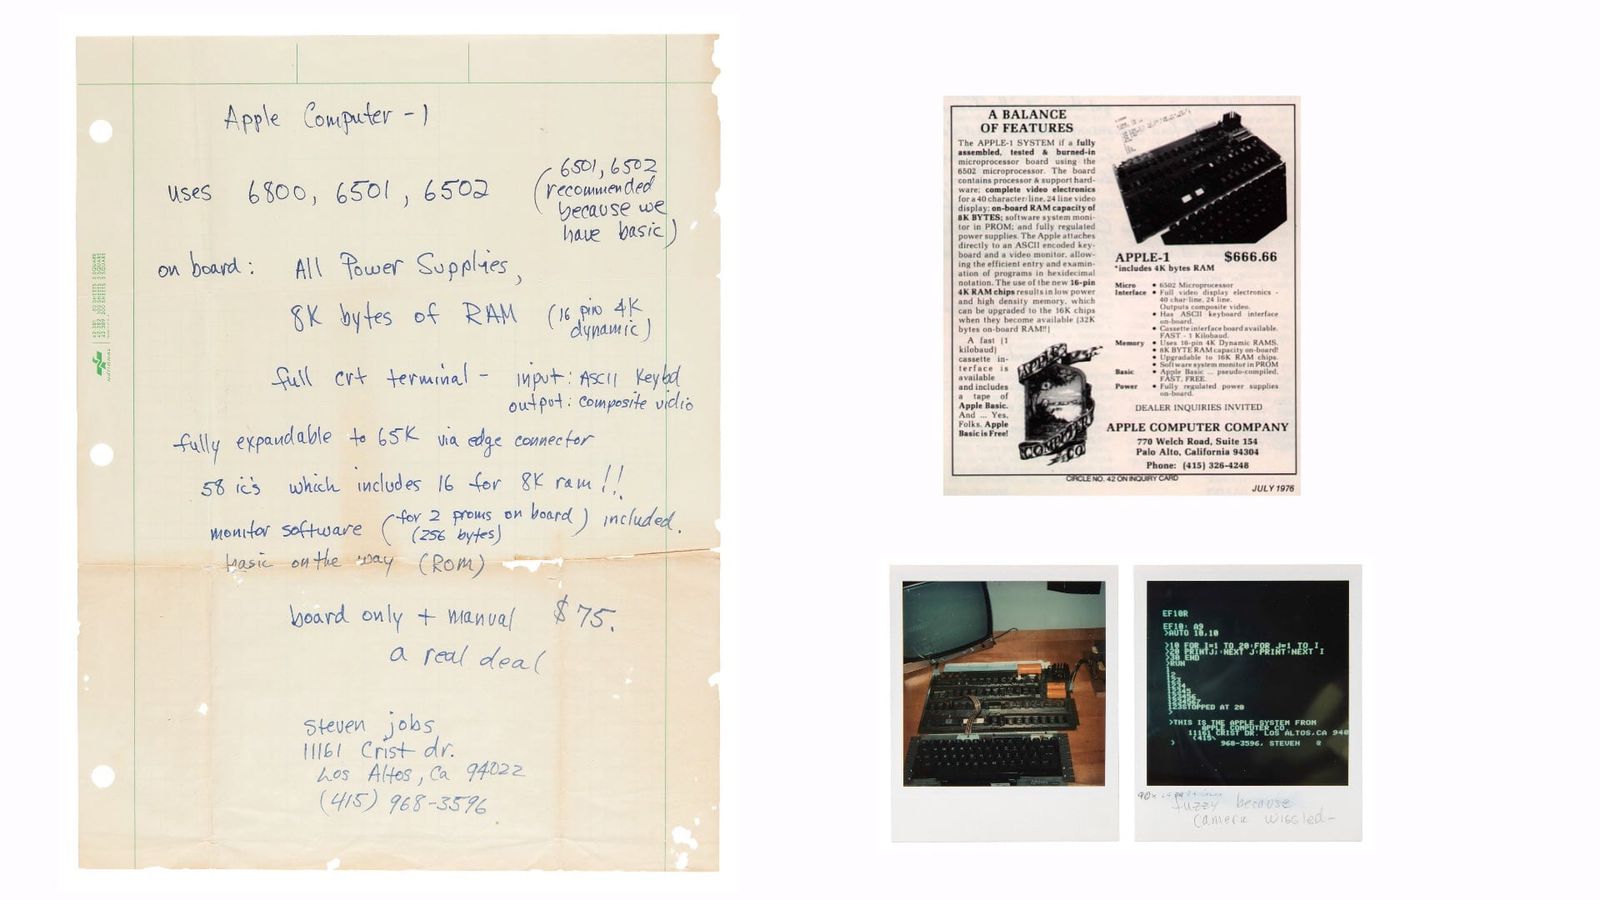 Apple Computer - 1
uses 6800, 6501, 6502
(6501, 6502
recommended
because we
have basic)
on board: All Power Supplies,
8K bytes of RAM (16 pin 4K
dynamic)
full crt terminal - input: ASCII Keybd
output: composite vidio
fully expandable to 65K via edge connector
58 ic's which includes 16 for 8K ram!!
monitor software (for 2 proms on board) included.
(256 bytes)
basic on the way (ROM)
board only + manual $75.
a real deal
Steven jobs
11161 Crist dr.
Los Altos, Ca 94022
(415) 968-3596
A BALANCE
OF FEATURES
The APPLE-1 SYSTEM if a fully
assembled, tested & burned-in
microprocessor board using the
6502 microprocessor. The board
contains processor & support hard-
ware; complete video electronics
for a 40 character/line, 24 line video
display; on-board RAM capacity of
8K BYTES; software system moni-
tor in PROM; and fully regulated
power supplies. The Apple attaches
directly to an ASCII encoded key-
board and a video monitor, allow-
ing the efficient entry and examin-
ation of programs in hexidecimal
notation. The use of the new 16-pin
4K RAM chips results in low power
and high density memory, which
can be upgraded to the 16K chips
when they become available (32K
bytes on-board RAM!!)
A fast (1
kilobaud)
cassette in-
terface is
available
and includes
a tape of
Apple Basic.
And ... Yes,
Folks, Apple
Basic is Free!
APPLE
COMPUTER
CO
APPLE-1 $666.66
*includes 4K bytes RAM
Micro • 6502 Microprocessor
Interface • Full video display electronics -
40 char/line, 24 line.
Outputs composite video.
• Has ASCII keyboard interface
on-board.
• Cassette interface board available.
FAST - 1 Kilobaud.
Memory • Uses 16-pin 4K Dynamic RAMS.
• 8K BYTE RAM capacity on-board!
• Upgradable to 16K RAM chips.
• Software system monitor in PROM
Basic • Apple Basic ... pseudo-compiled,
FAST, FREE.
Power • Fully regulated power supplies
on-board.
DEALER INQUIRIES INVITED
APPLE COMPUTER COMPANY
770 Welch Road, Suite 154
Palo Alto, California 94304
Phone: (415) 326-4248
CIRCLE NO. 42 ON INQUIRY CARD
JULY 1976
EF10R
EF10: A9
>AUTO 10,10
>10 FOR I=1 TO 20:FOR J=1 TO I
>20 PRINTJ;:NEXT J:PRINT:NEXT I
>30 END
>RUN
1
12
123
1234
12345
123456
1234567
123STOPPED AT 20
>
>THIS IS THE APPLE SYSTEM FROM
APPLE COMPUTER CO
11161 CRIST DR. LOS ALTOS,CA 940
(415\
> 968-3596, STEVEN
fuzzy because
camera wiggled-